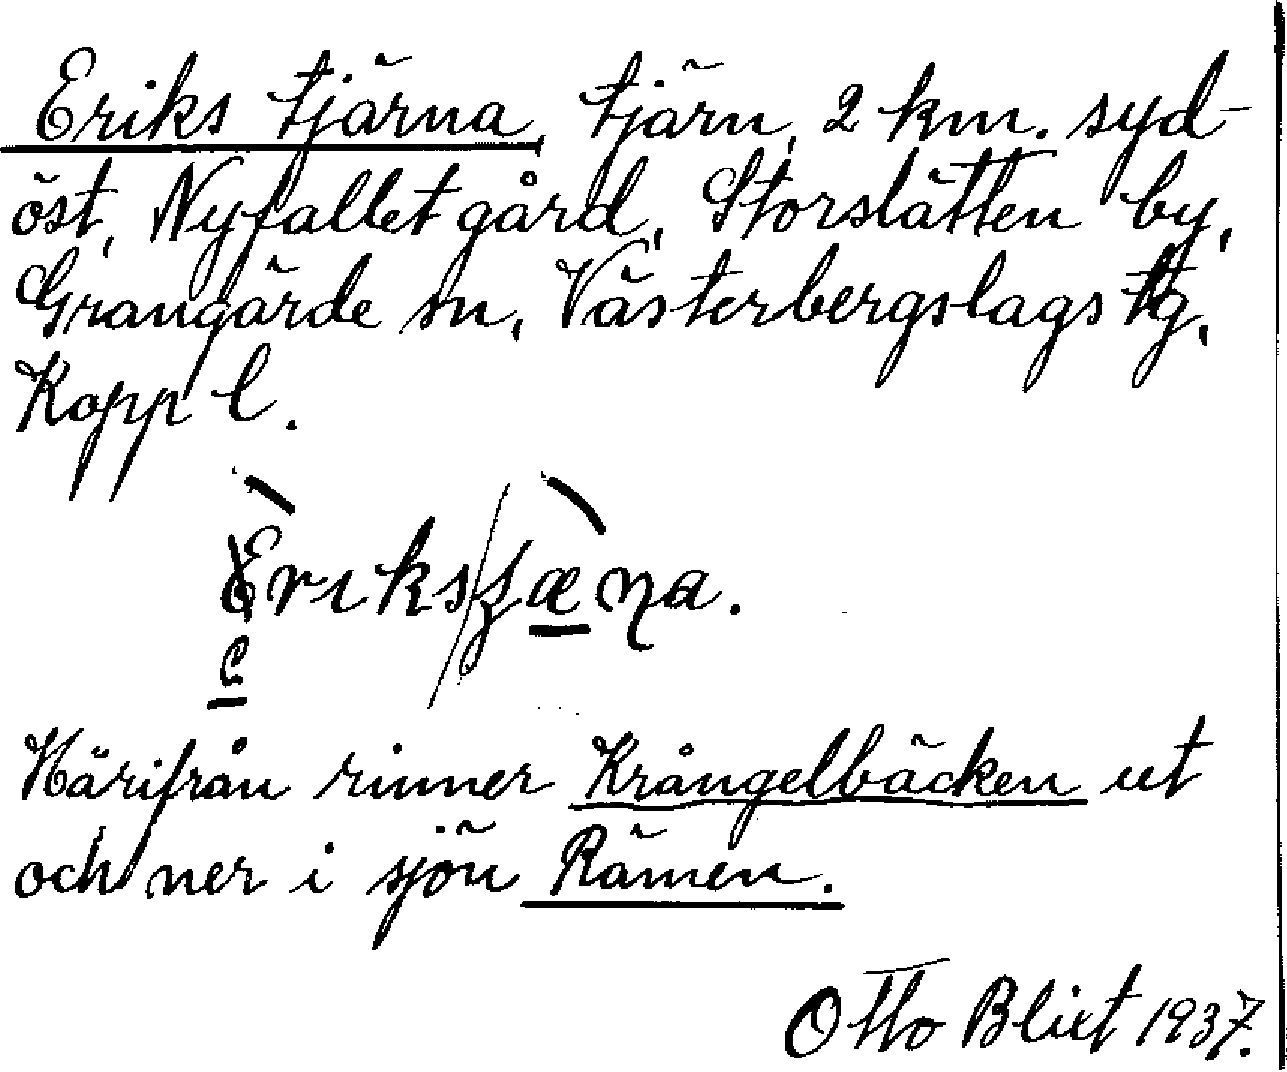 Eriks tjärna, tjärn, 2 km. syd-
öst, Nyfallet gård, Storslätten by,
Grangärde sn, Västerbergslags tg,
Kopp l.
Eriks/ʃæna.
e
Härifrån rinner Krångelbäcken ut
och ner i sjön Rämen.
Otto Blixt 1937.